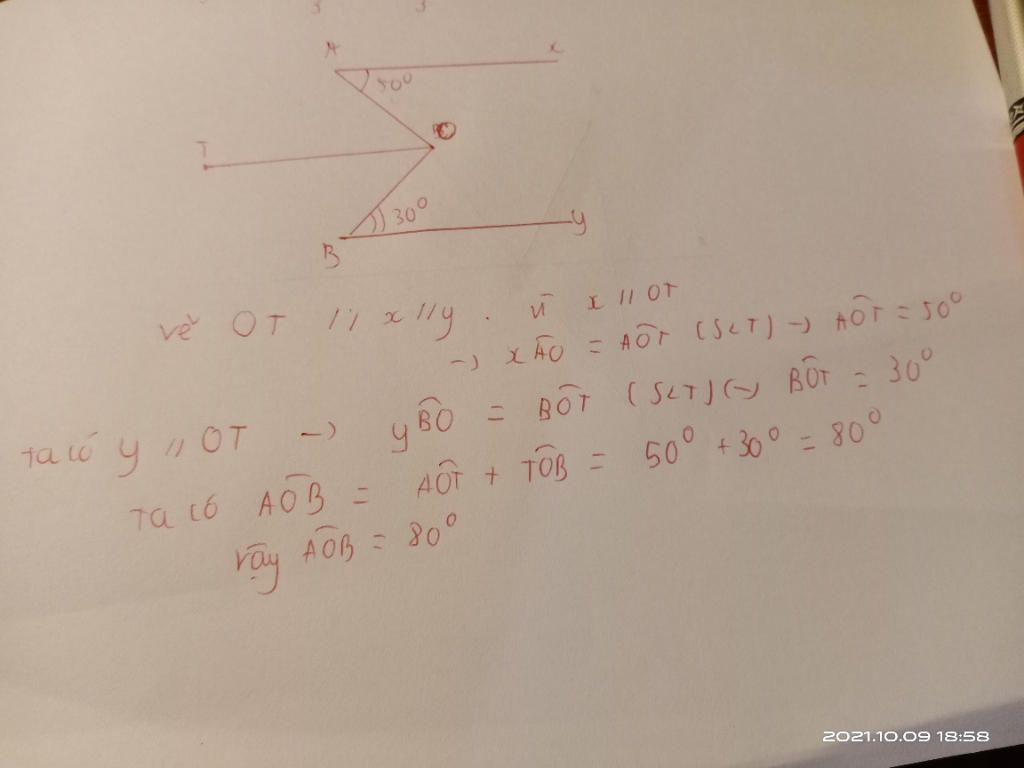 A x
50°
T O
30°
B y
vẽ OT // x // y . vì x // OT
→ xÂO = AÔT (SLT) → AÔT = 50°
ta có y // OT → yB̂O = BÔT (SLT) (→ BÔT = 30°
Ta có AÔB = AÔT + TÔB = 50° + 30° = 80°
vậy AÔB = 80°
2021.10.09 18:58